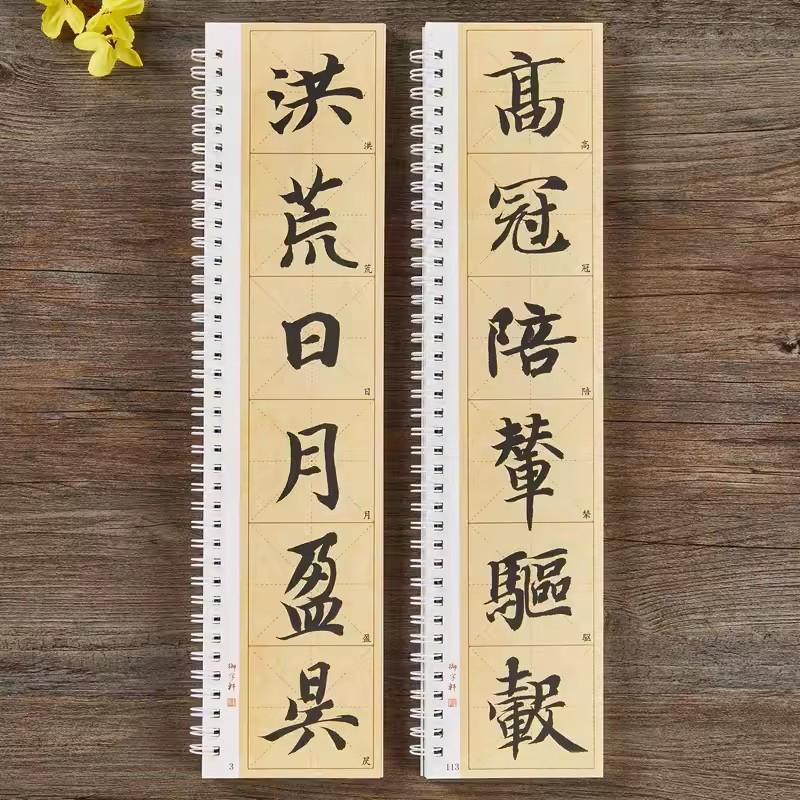 洪荒日月盈昃
洪
荒
日
月
盈
御字軒
3
髙冠陪輦驅轂
高
冠
陪
驱
御字軒
113